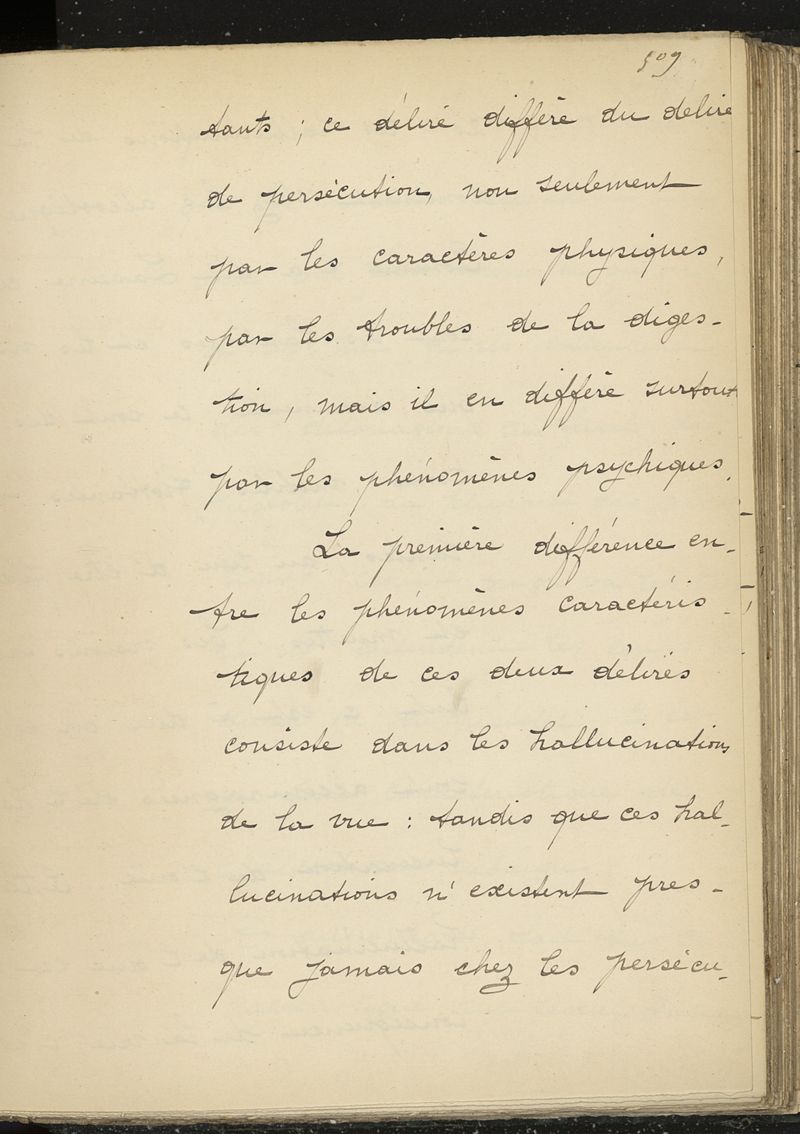 509
tants ; ce délire diffère du délire
de persécution, non seulement
par les caractères physiques,
par les troubles de la diges-
tion, mais il en diffère surtout
par les phénomènes psychiques.
La première différence en-
tre les phénomènes caractéris-
tiques de ces deux délires
consiste dans les hallucinations
de la vue : tandis que ces hal-
lucinations n'existent pres-
que jamais chez les persécu-